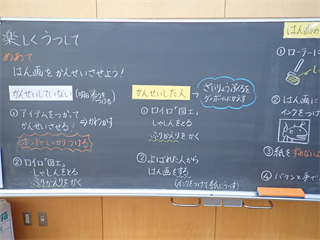 楽しくうつして
めあて
はん画をかんせいさせよう！
かんせいしていない
①アイテムをつかって
かんせいさせる！
②ロイロ「図工」
しゃしんをとる
ふりかえりをかく
かんせいした人
ざいりょうぶくろを
ダンボールにかえす
①ロイロ「図工」
しゃしんをとる
ふりかえりをかく
②よばれた人から
はん画をする
(インクをつけて紙にうつす)
はん画の
①ローラーに
②はん画に
インクをつけ
③紙を
④バレンと手で